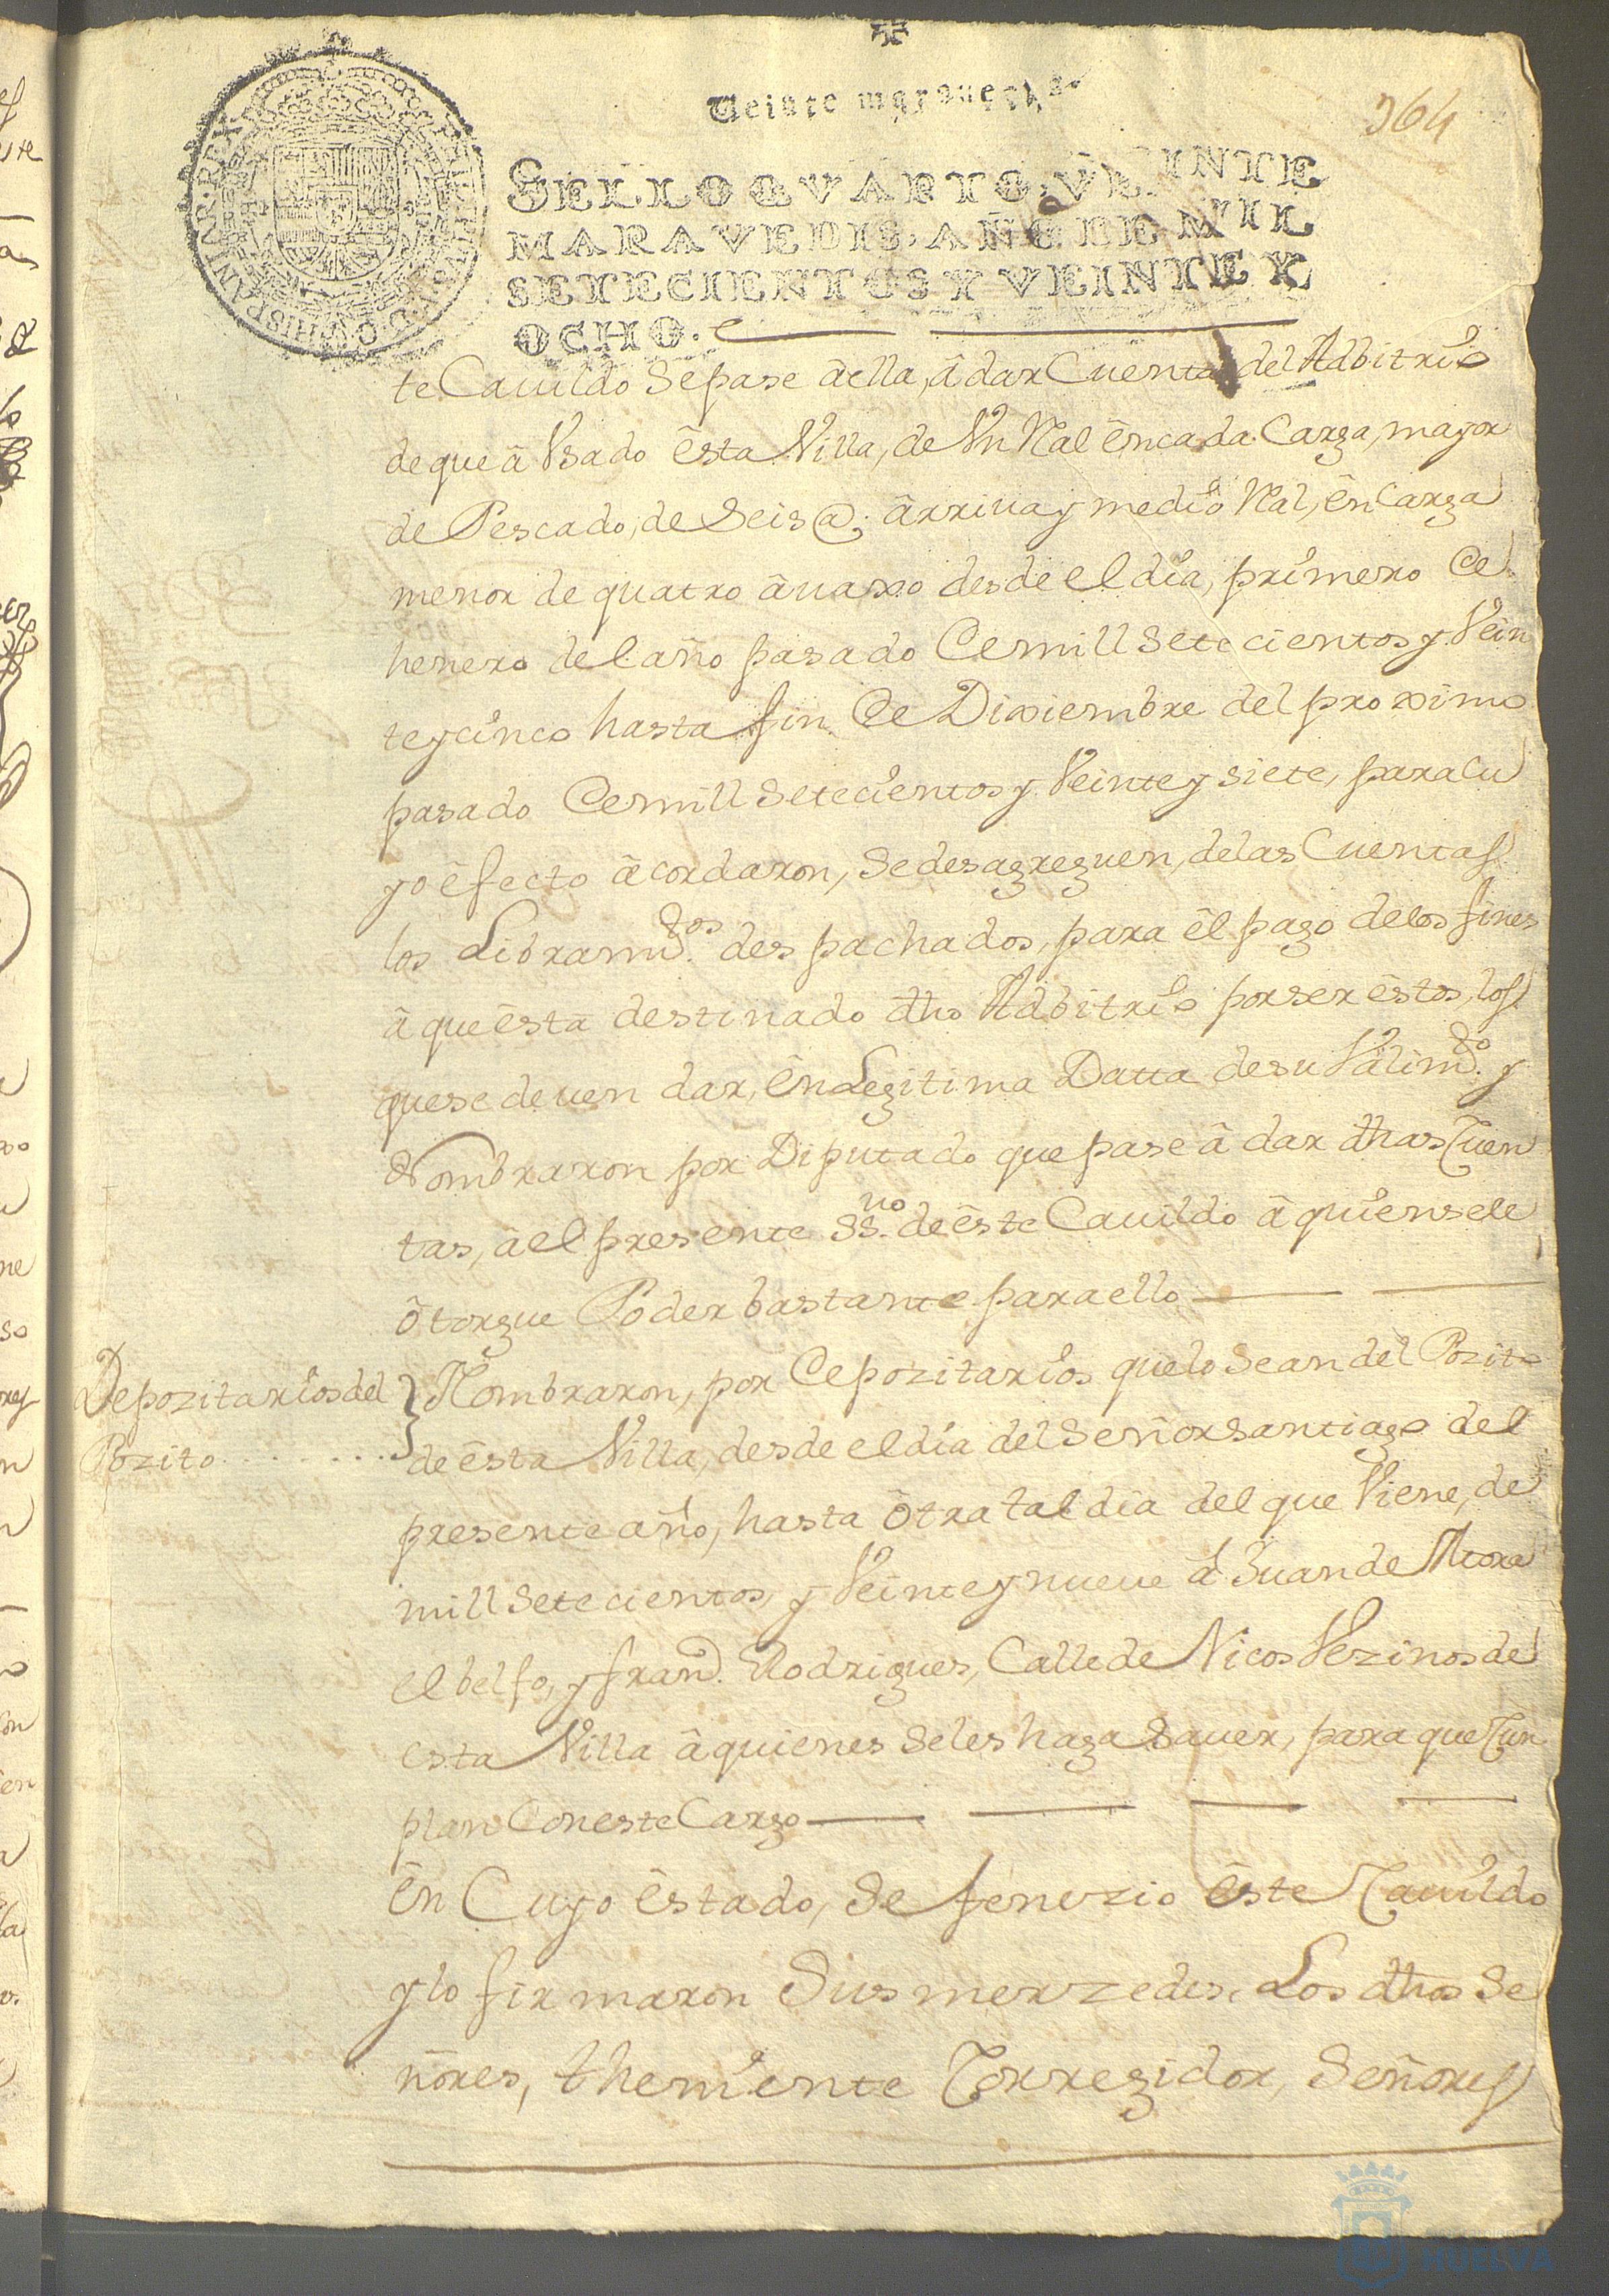 Veinte maravedis
364
SELLO QVARTO, VEINTE
MARAVEDIS, AÑO DE MIL
SETECIENTOS Y VEINTE Y
OCHO.
te Cauildo se pase â ella, â dar Cuenta del Adbitrio
de que â Vsado êsta Villa, de Vn Ral ên cada Carga, mayor
de Pescado, de Seis @. ârriua y medio Ral, ên Carga
menor de quatro âuaxo desde el dia, primero De
henero del año pasado Demill Setecientos y Vein
te y cinco hasta fin De Diziembre del proximo
pasado Demill Setecientos y Veinte y siete, para Cu
yo êfecto âcordaron, Se desagreguen, de las Cuentas
los Libramtos. despachados, para êl pago de los fines
â que êsta destinado dho Adbitrio por ser êstos, los
que se deuen dar, ên Legitima Datta de su Valimto. y
Nombraron por Diputado que pase â dar dhas Cuen
tas, â el presente SSno. de êste Cauildo â quien se le
ôtorgue Poder bastante para ello
Depozitarios del
Pozito
Nombraron, por Depozitarios que lo Sean del Pozito
de êsta Villa, desde el dia del Señor Santiago del
presente año, hasta ôtra tal dia del que Viene, de
mill Setecientos, y Veinte y nueue â Juan de Mora
el belfo, y frand. Rodrigues, Calle de Nicos Vezinos de
esta Villa â quienes Se les haga Sauer, para que Cun
plan Con este Cargo
Ên Cuyo êstado, Se fenezio êste Cauildo
y lo firmaron Sus merzedes, Los dhos Se
ñores, theniente Corregidor, Señores
HUELVA